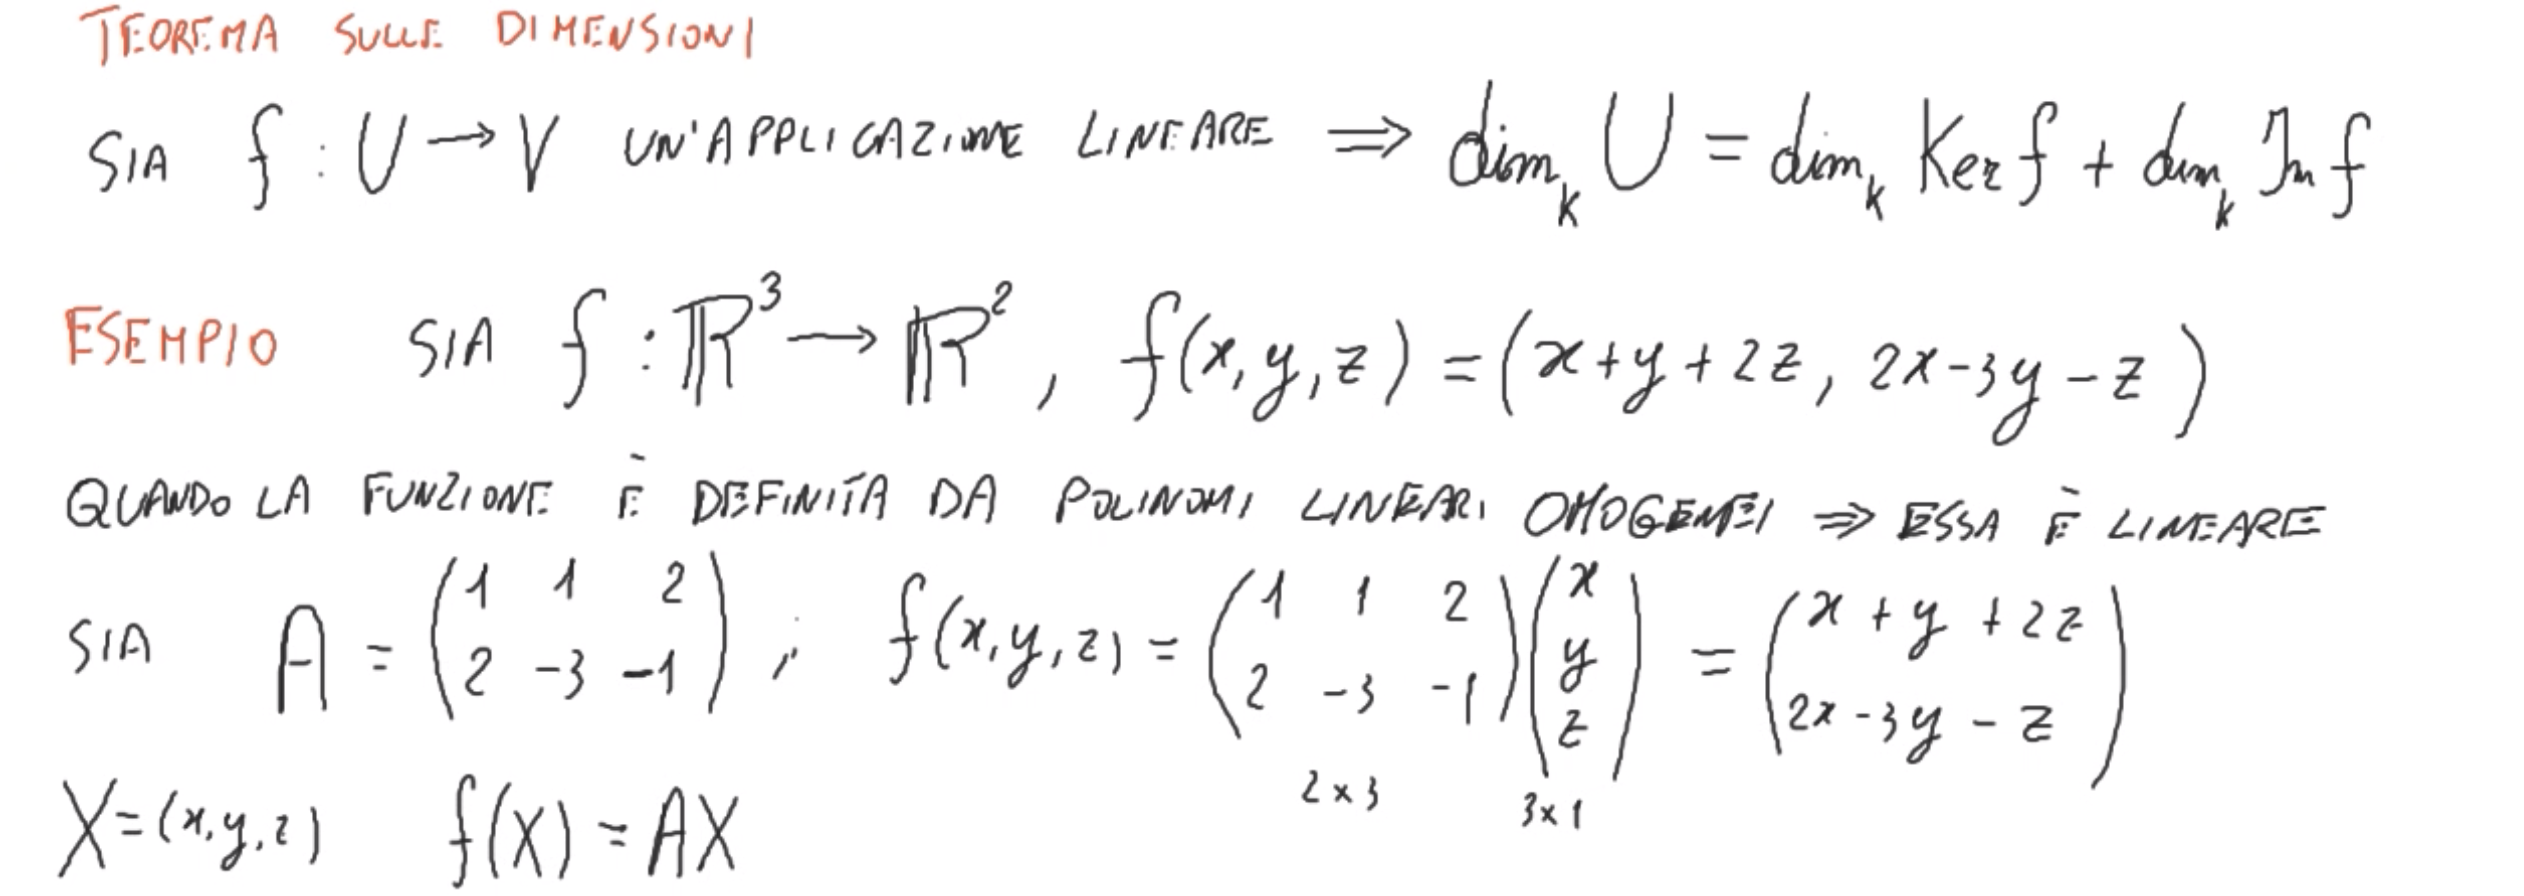 TEOREMA SULLE DIMENSIONI
SIA f : U → V UN'APPLICAZIONE LINEARE ⇒ dim_K U = dim_K Ker f + dim_K Im f
ESEMPIO SIA f : ℝ³ → ℝ², f(x, y, z) = (x + y + 2z, 2x - 3y - z)
QUANDO LA FUNZIONE È DEFINITA DA POLINOMI LINEARI OMOGENEI ⇒ ESSA È LINEARE
SIA A = (1 1 2 ; 2 -3 -1) ; f(x, y, z) = (1 1 2 ; 2 -3 -1) (x ; y ; z) = (x + y + 2z ; 2x - 3y - z)
2 x 3 3 x 1
X = (x, y, z) f(X) = AX